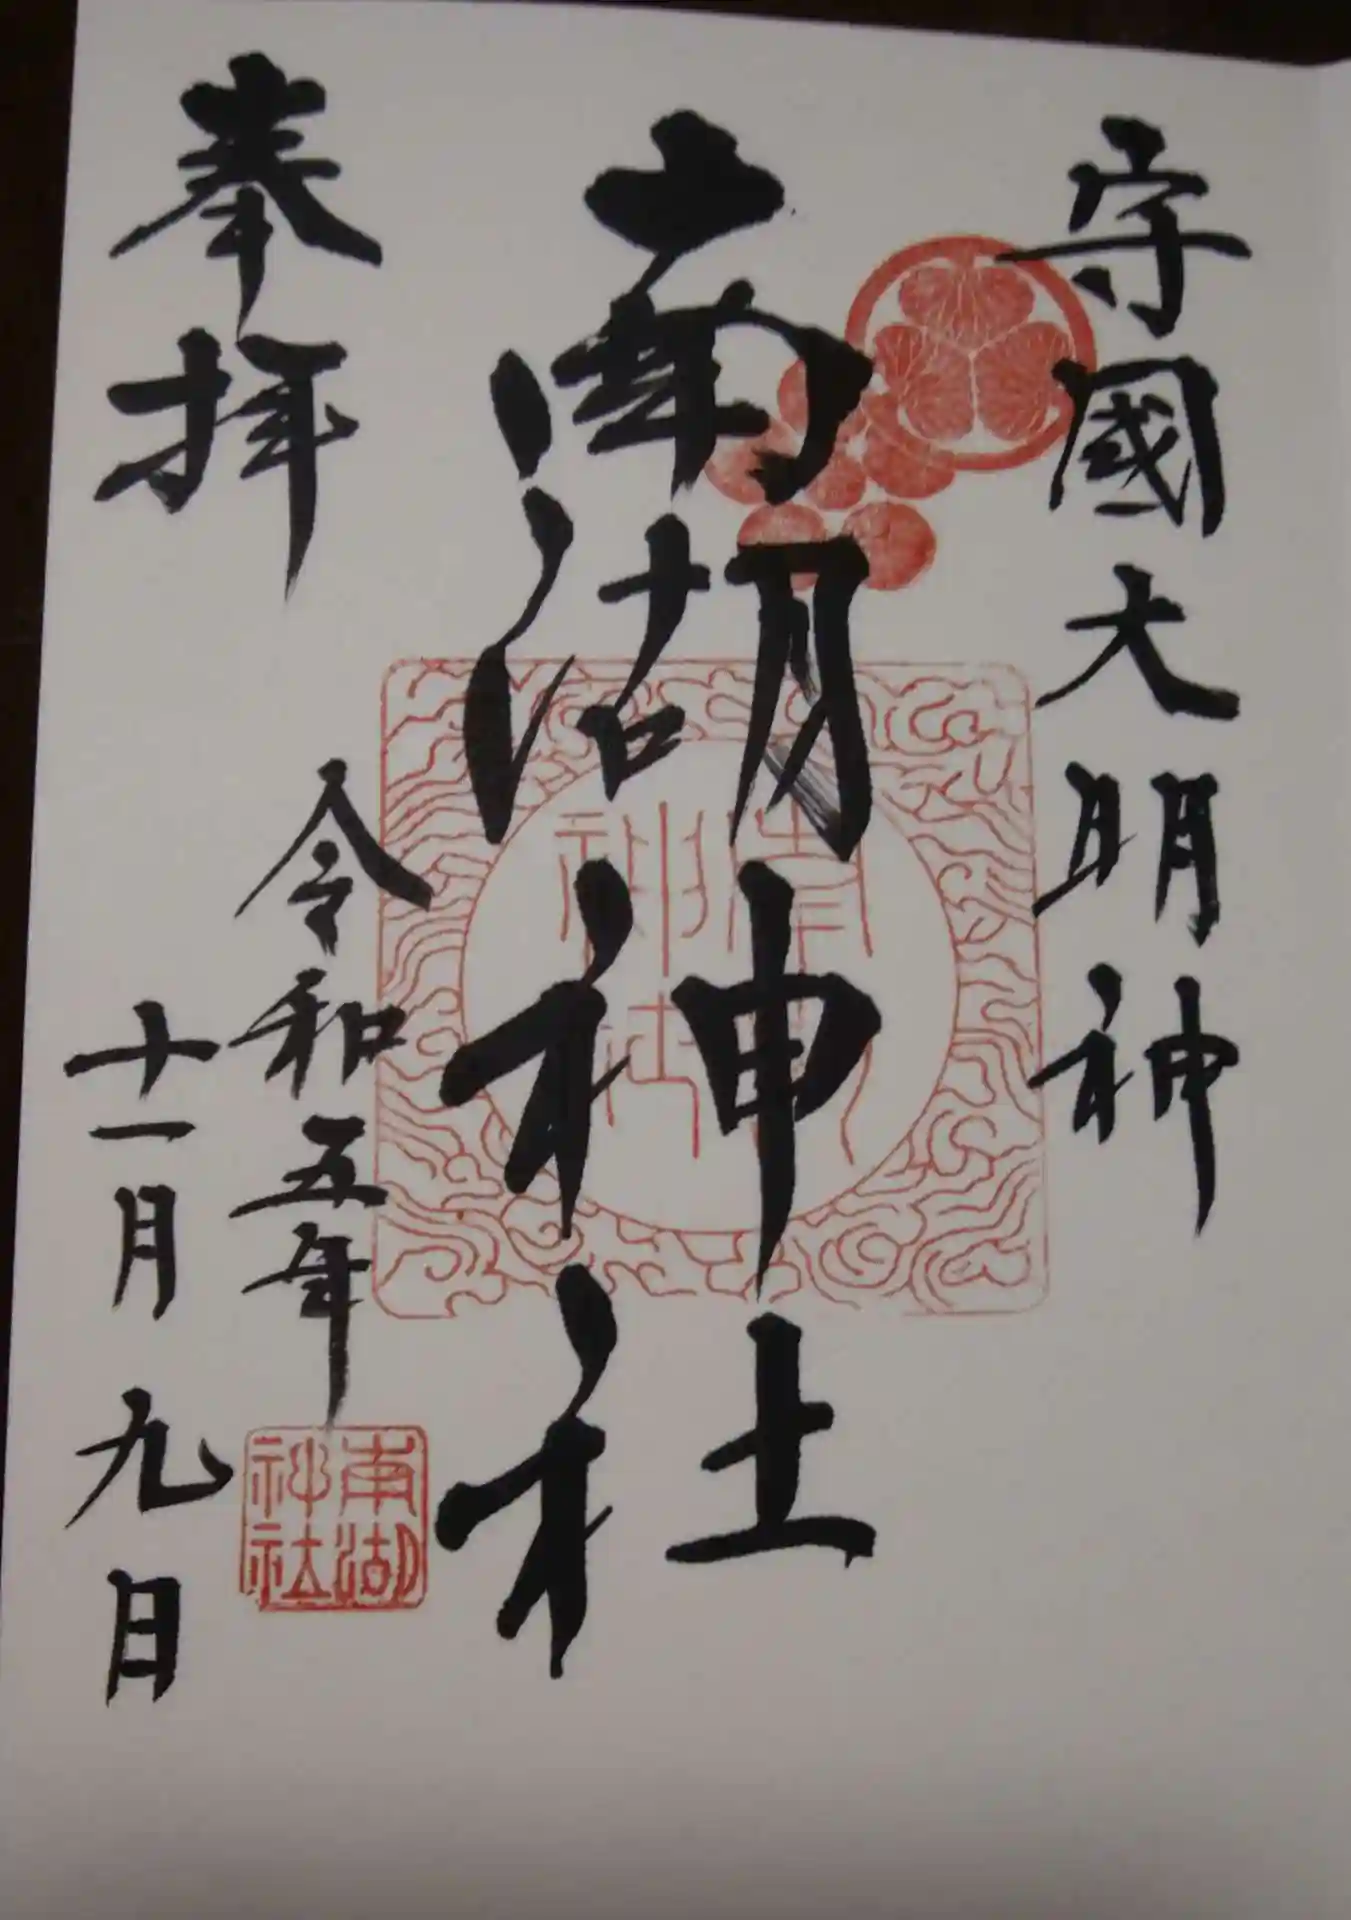 守國大明神
南湖神社
奉拝
令和五年
十一月九日
南湖
神社
南湖
神社